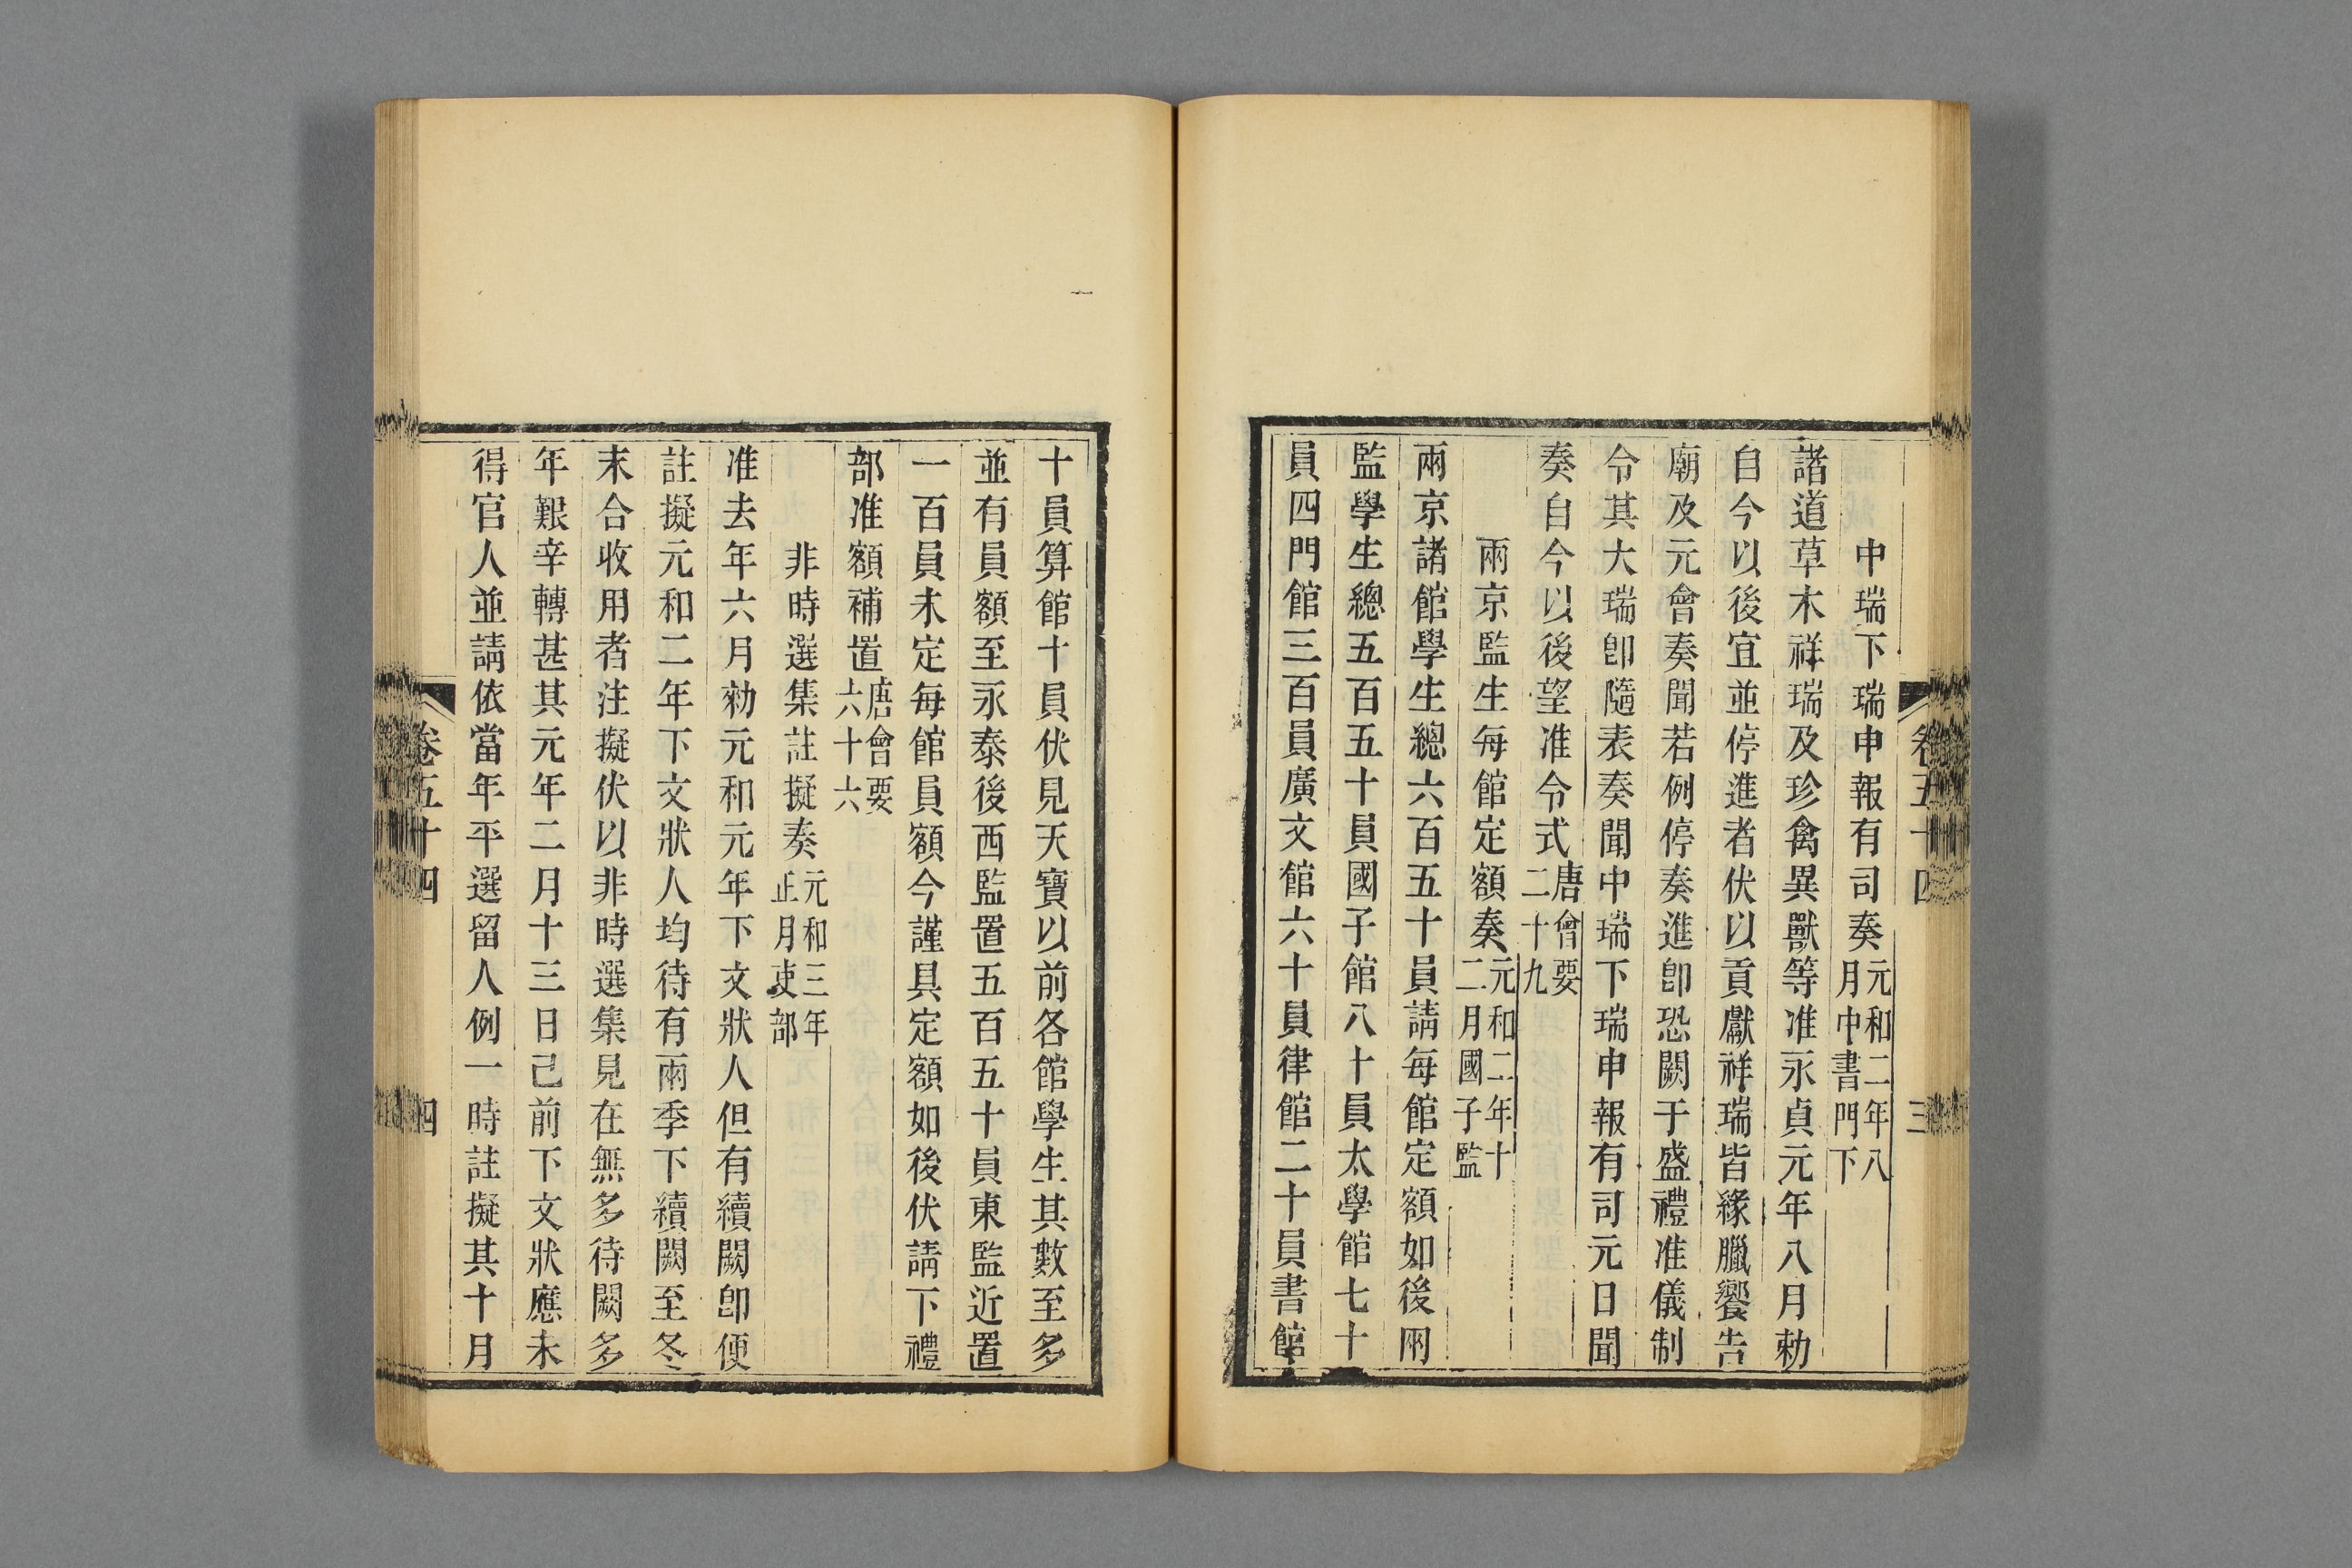 卷五十四
三
中瑞下瑞申報有司奏元和二年八月中書門下
諸道草木祥瑞及珍禽異獸等准永貞元年八月勅
自今以後宜並停進者伏以貢獻祥瑞皆緣臘饗告
廟及元會奏聞若例停奏進卽恐闕于盛禮准儀制
令其大瑞卽隨表奏聞中瑞下瑞申報有司元日聞
奏自今以後望准令式唐會要二十九
兩京監生每館定額奏元和二年十二月國子監
兩京諸館學生總六百五十員請每館定額如後兩
監學生總五百五十員國子館八十員太學館七十
員四門館三百員廣文館六十員律館二十員書館
十員算館十員伏見天寶以前各館學生其數至多
並有員額至永泰後西監置五百五十員東監近置
一百員未定每館員額今謹具定額如後伏請下禮
部准額補置唐會要六十六
非時選集註擬奏元和三年正月吏部
准去年六月勅元和元年下文狀人但有續闕卽便
註擬元和二年下文狀人均待有兩季下續闕至冬
末合收用者注擬伏以非時選集見在無多待闕多
年艱辛轉甚其元年二月十三日己前下文狀應未
得官人並請依當年平選留人例一時註擬其十月
卷五十四
四